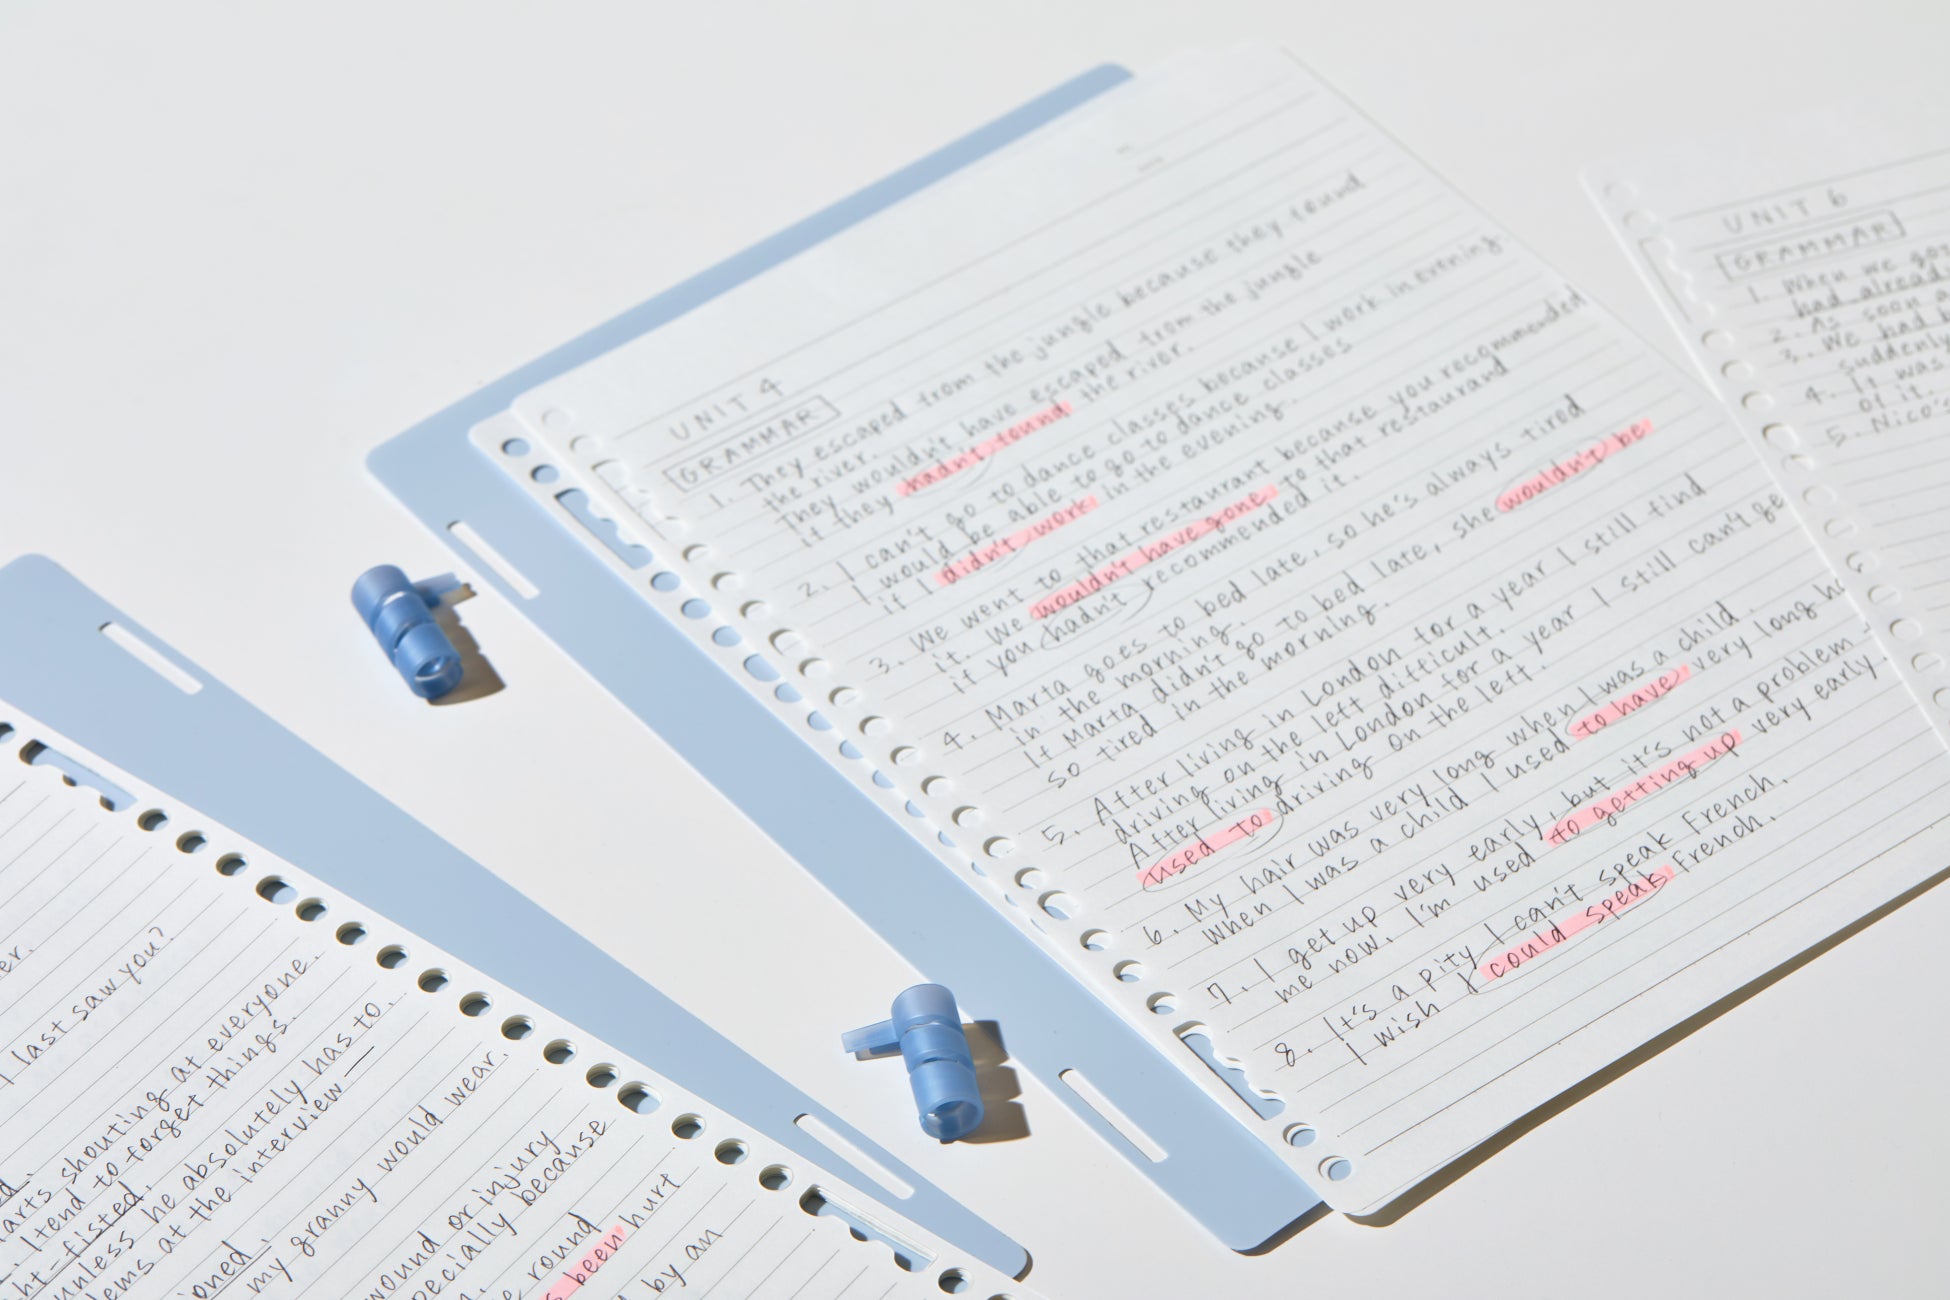 UNIT 4
GRAMMAR
1. They escaped from the jungle because they found
the river.
They wouldn't have escaped from the jungle
if they hadn't found the river.
2. I can't go to dance classes because I work in evening.
I would be able to go to dance classes
if I didn't work in the evening.
3. We went to that restaurant because you recommended
it. We wouldn't have gone to that restaurand
if you hadn't recommended it.
4. Marta goes to bed late, so he's always tired
in the morning.
If Marta didn't go to bed late, she wouldn't be
so tired in the morning.
5. After living in London for a year I still find
driving on the left difficult.
After living in London for a year I still can't ge
used to driving on the left.
6. My hair was very long when I was a child.
When I was a child I used to have very long
7. I get up very early, but it's not a problem
me now. I'm used to getting up very early.
8. It's a pity I can't speak French.
I wish I could speak French.
UNIT 6
GRAMMAR
1. When we go
had already
2. As soon a
3. We had b
suddenly
4. It was
of it.
5. Nico's
er.
I last saw you?
arts shouting at everyone.
. I tend to forget things.
ht-fisted.
unless he absolutely has to.
lems at the interview
oned.
my granny would wear.
wound or injury
pecially because
e round
been hurt
by an